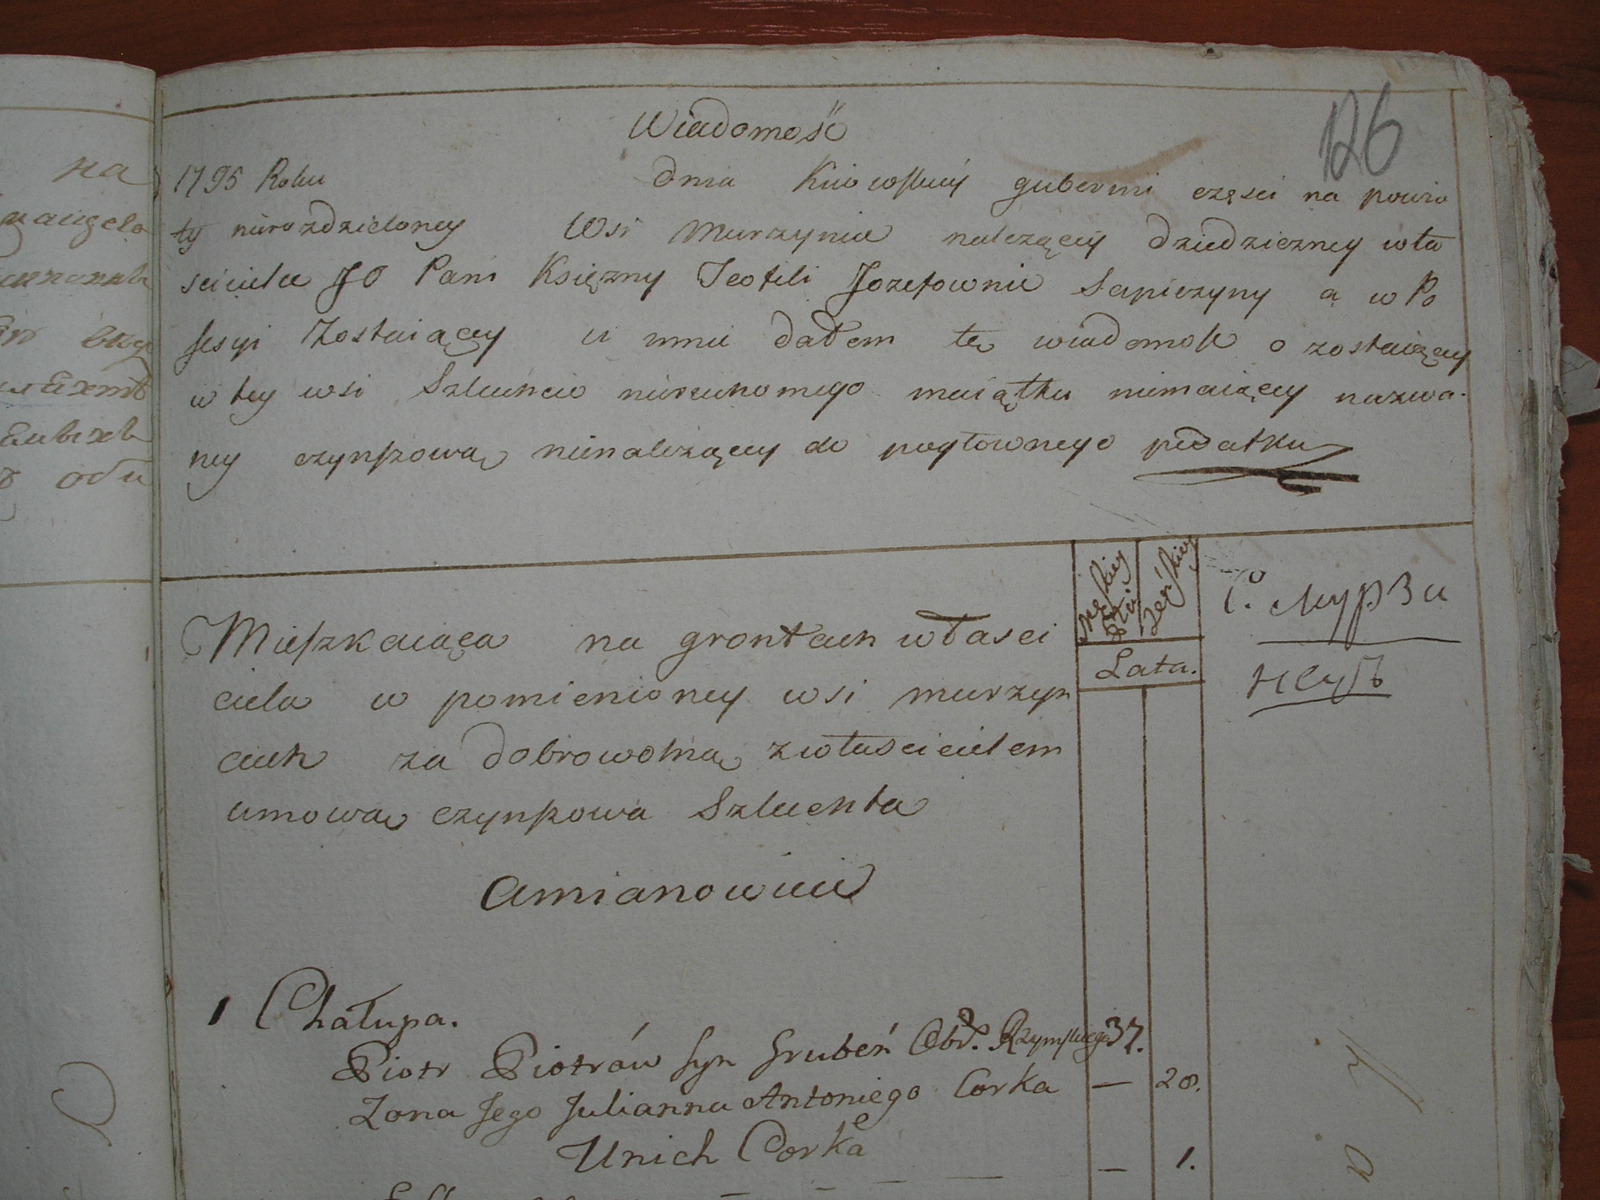 126
Wiadomość
1795 Roku dnia Kiiowskiey gubernii części na powia
ty nierozdzieloney Wsi Murzyniec należącey dziedziczney wła
scicielce JO Pani Księzny Teofili Jozefownie Sapieżyny a w Po
sesyi zostaiącey u mnie dałem tę wiadomość o zostaiącey
w tey wsi Szlachcie nieruchomego maiątku niemaiącey nazwa-
ney czynszową nienależącey do pogłownego podatku
męskiey płci
żeńskiey
Lata.
С. Мурзи
нецъ
Mieszkaiąca na grontach własci
ciela w pomienioney wsi murzyn
cach za dobrowolną z własci­cielem
umową czynszowa Szlachta
Amianowicie
1 Chałupa.
Piotr Piotrów syn Grubeń Obr. Rzymskiego 37.
Zona Jego Julianna Antoniego Corka — 20.
Unich Corka — 1.